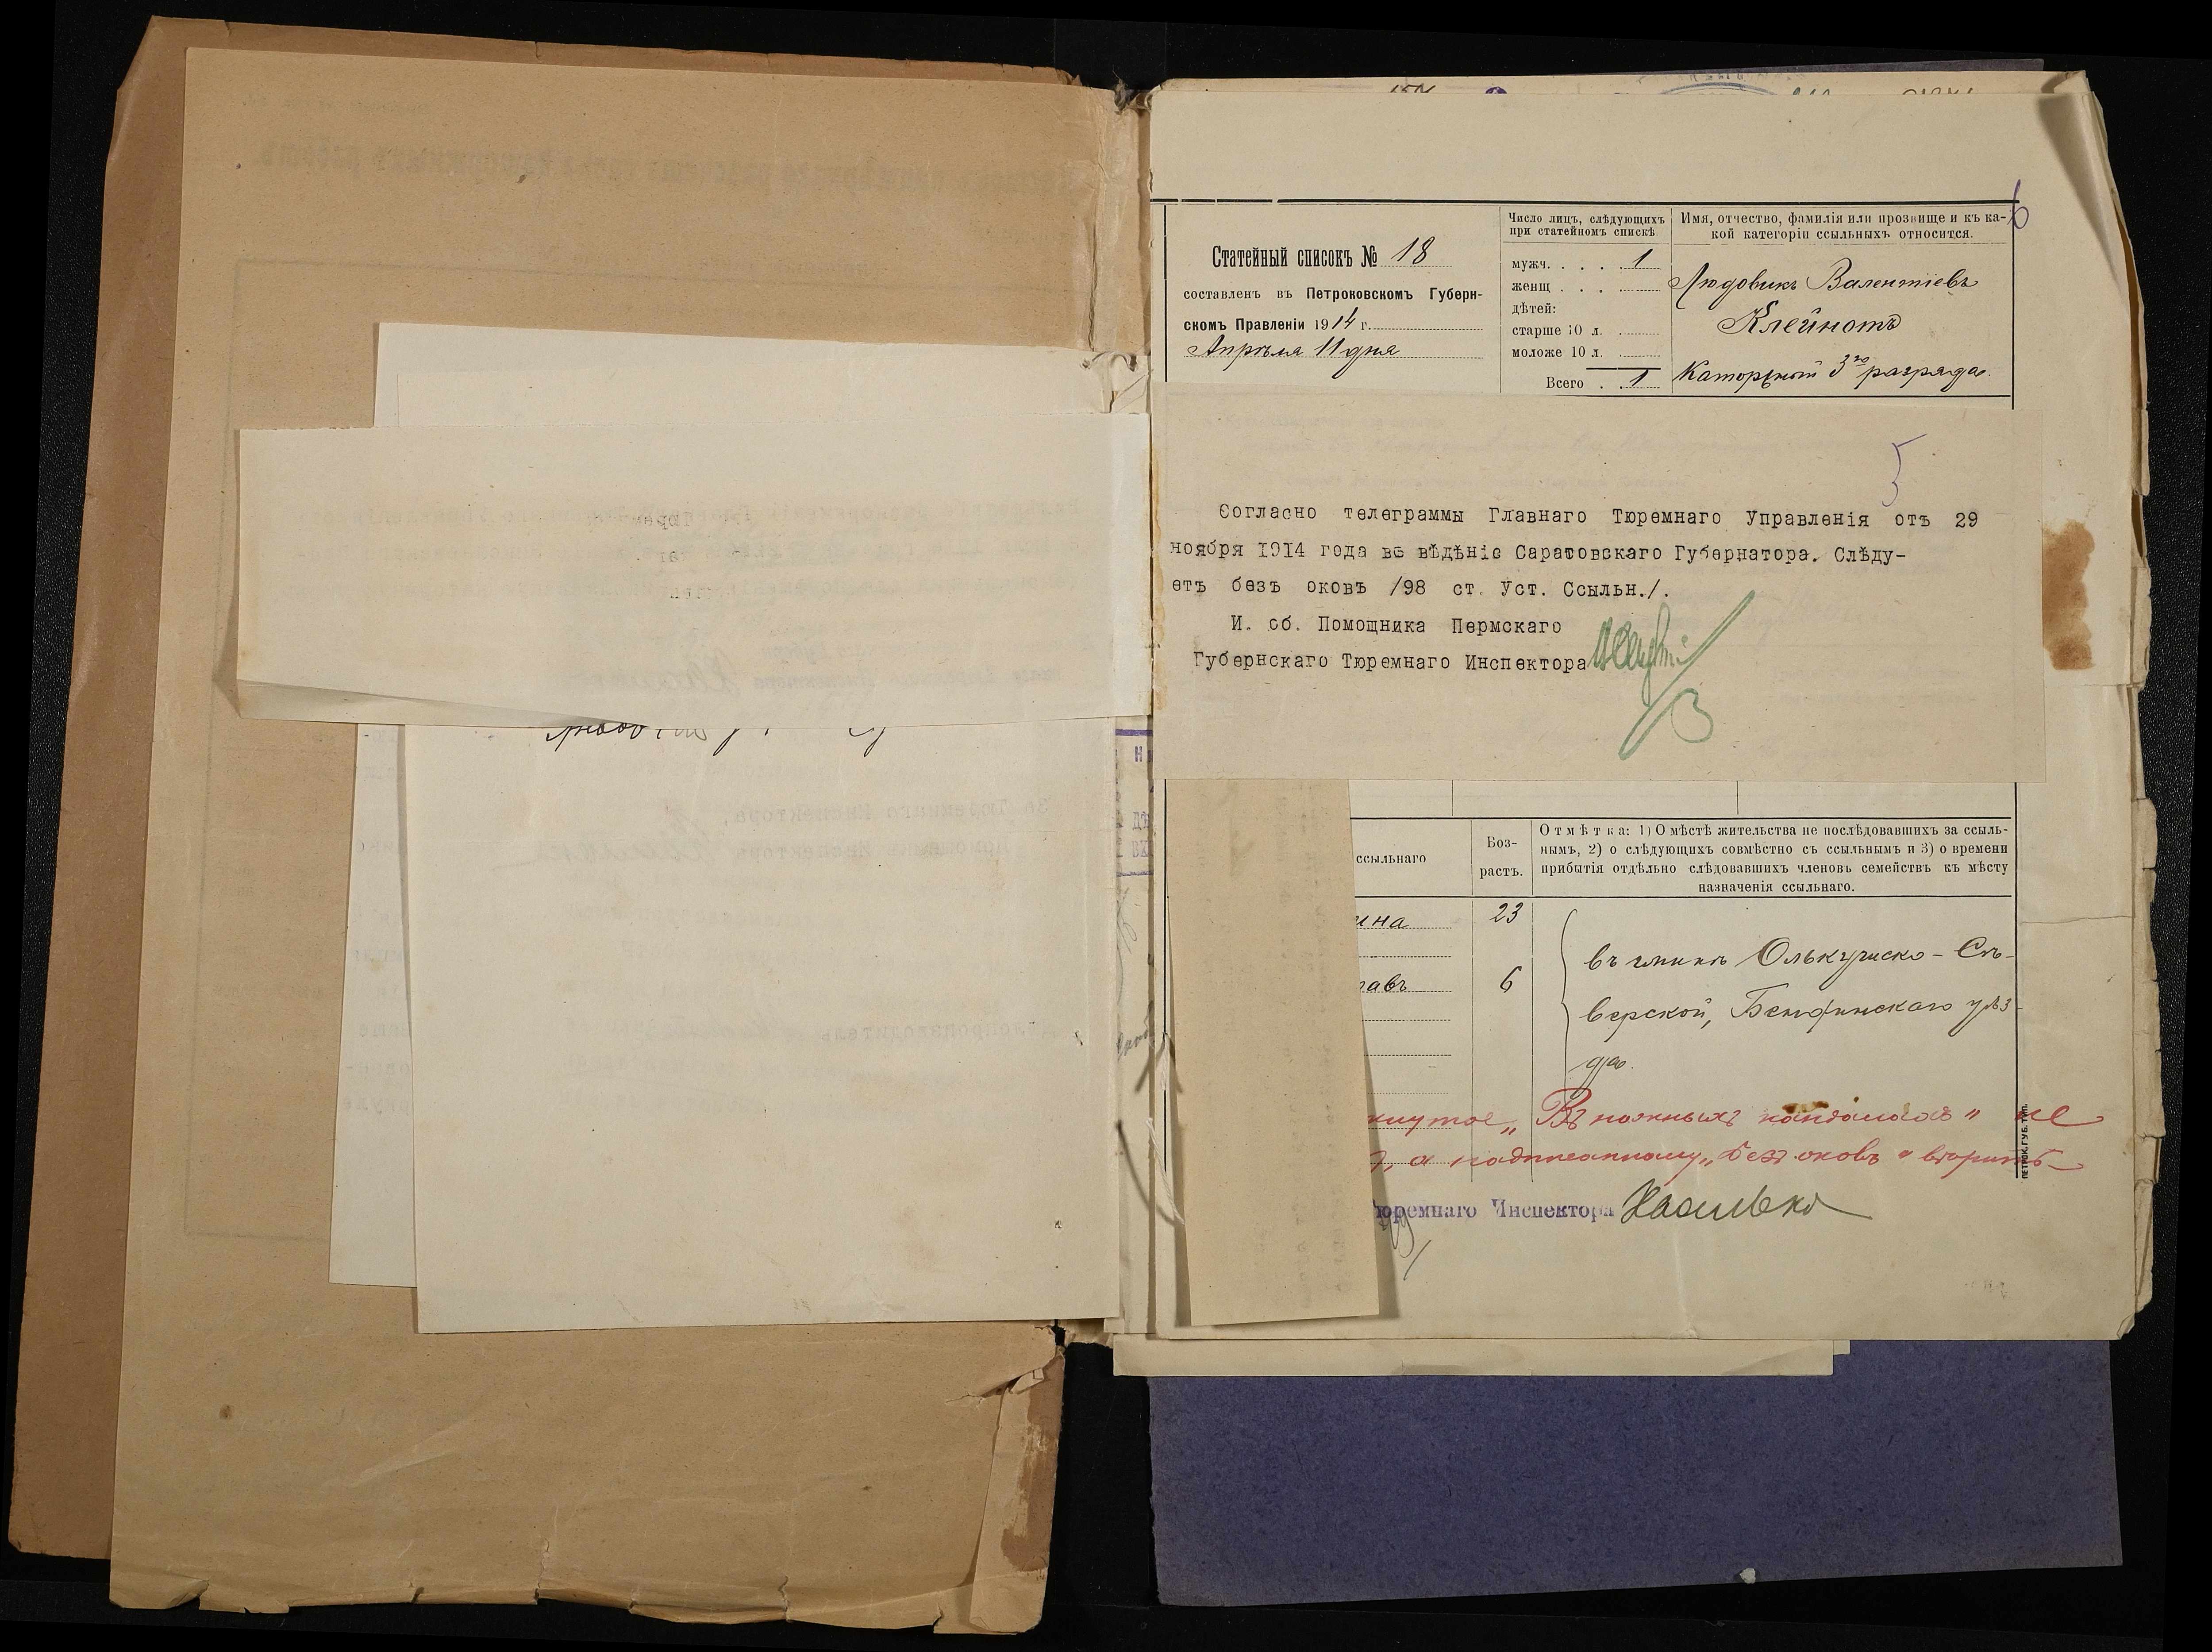 Статейный списокъ № 18
составленъ въ Петроковскомъ Губерн-
скомъ Правленіи 1914 г.
Апрѣля 11 дня
Число лицъ, слѣдующихъ
при статейномъ спискѣ
мужч. . . . . 1
женщ . . . .
дѣтей:
старше 10 л.
моложе 10 л.
Всего . . 1
Имя, отчество, фамилія или прозвище и къ ка-
кой категоріи ссыльныхъ относится.
Людовикъ Валентіевъ
Клейнотъ
Каторжный 3го разряда.
6
5
Согласно телеграммы Главнаго Тюремнаго Управленія отъ 29
ноября 1914 года въ вѣдѣніе Саратовскаго Губернатора. Слѣду-
етъ безъ оковъ /98 ст. Уст. Ссыльн./.
И. об. Помощника Пермскаго
Губернскаго Тюремнаго Инспектора
ссыльнаго
Воз-
растъ.
Отмѣтка: 1) О мѣстѣ жительства не послѣдовавшихъ за ссыль-
нымъ, 2) о слѣдующихъ совмѣстно съ ссыльнымъ и 3) о времени
прибытія отдѣльно слѣдовавшихъ членовъ семействъ къ мѣсту
назначенія ссыльнаго.
ина 23
лавъ 6
въ гминѣ Олькушско-Сѣ-
верской, Бендинскаго уѣз-
да.
кнутое „Въ ножныхъ кандалахъ" не
а надписанному „безъ оковъ" вѣрить
Тюремнаго Инспектора
ПЕТРОК. ГУБ. ТИП.